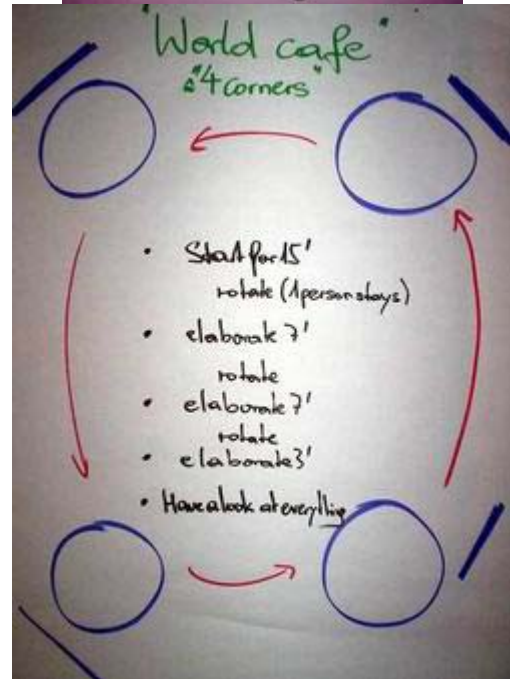 "World cafe"
"4 corners"
• Start for 15'
rotate (1 person stays)
• elaborate 7'
rotate
• elaborate 7'
rotate
• elaborate 3'
• Have a look at everything